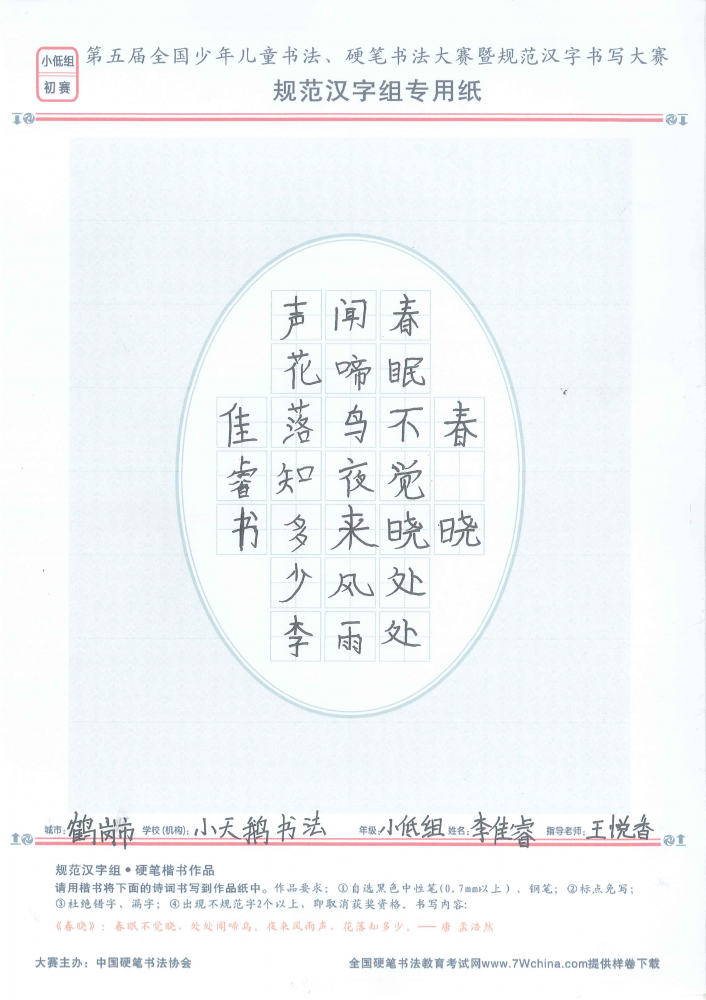 小低组
初赛
第五届全国少年儿童书法、硬笔书法大赛暨规范汉字书写大赛
规范汉字组专用纸
春晓
春眠不觉晓处处
闻啼鸟夜来风雨
声花落知多少李
佳睿书
城市：鹤岗市 学校(机构)：小天鹅书法 年级：小低组 姓名：李佳睿 指导老师：王悦香
规范汉字组●硬笔楷书作品
请用楷书将下面的诗词书写到作品纸中。作品要求：①自选黑色中性笔(0.7mm以上)、钢笔；②标点免写；
③杜绝错字、漏字；④出现不规范字2个以上，即取消获奖资格。书写内容：
《春晓》：春眠不觉晓，处处闻啼鸟。夜来风雨声，花落知多少。——唐 孟浩然
大赛主办：中国硬笔书法协会 全国硬笔书法教育考试网www.7Wchina.com提供样卷下载